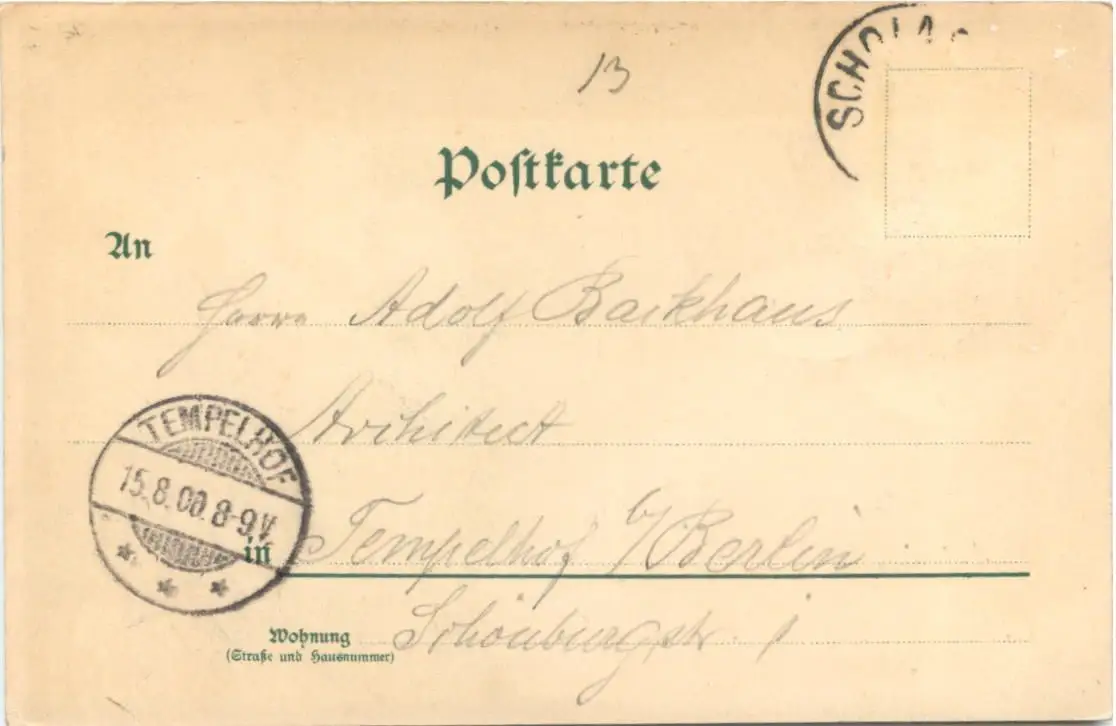 13
SCHOLA
Postkarte
An
Herrn Adolf Backhaus
Architect
TEMPELHOF
15.8.00. 8-9V.
in Tempelhof b/Berlin
Wohnung
(Straße und Hausnummer)
Schönburgstr. 1